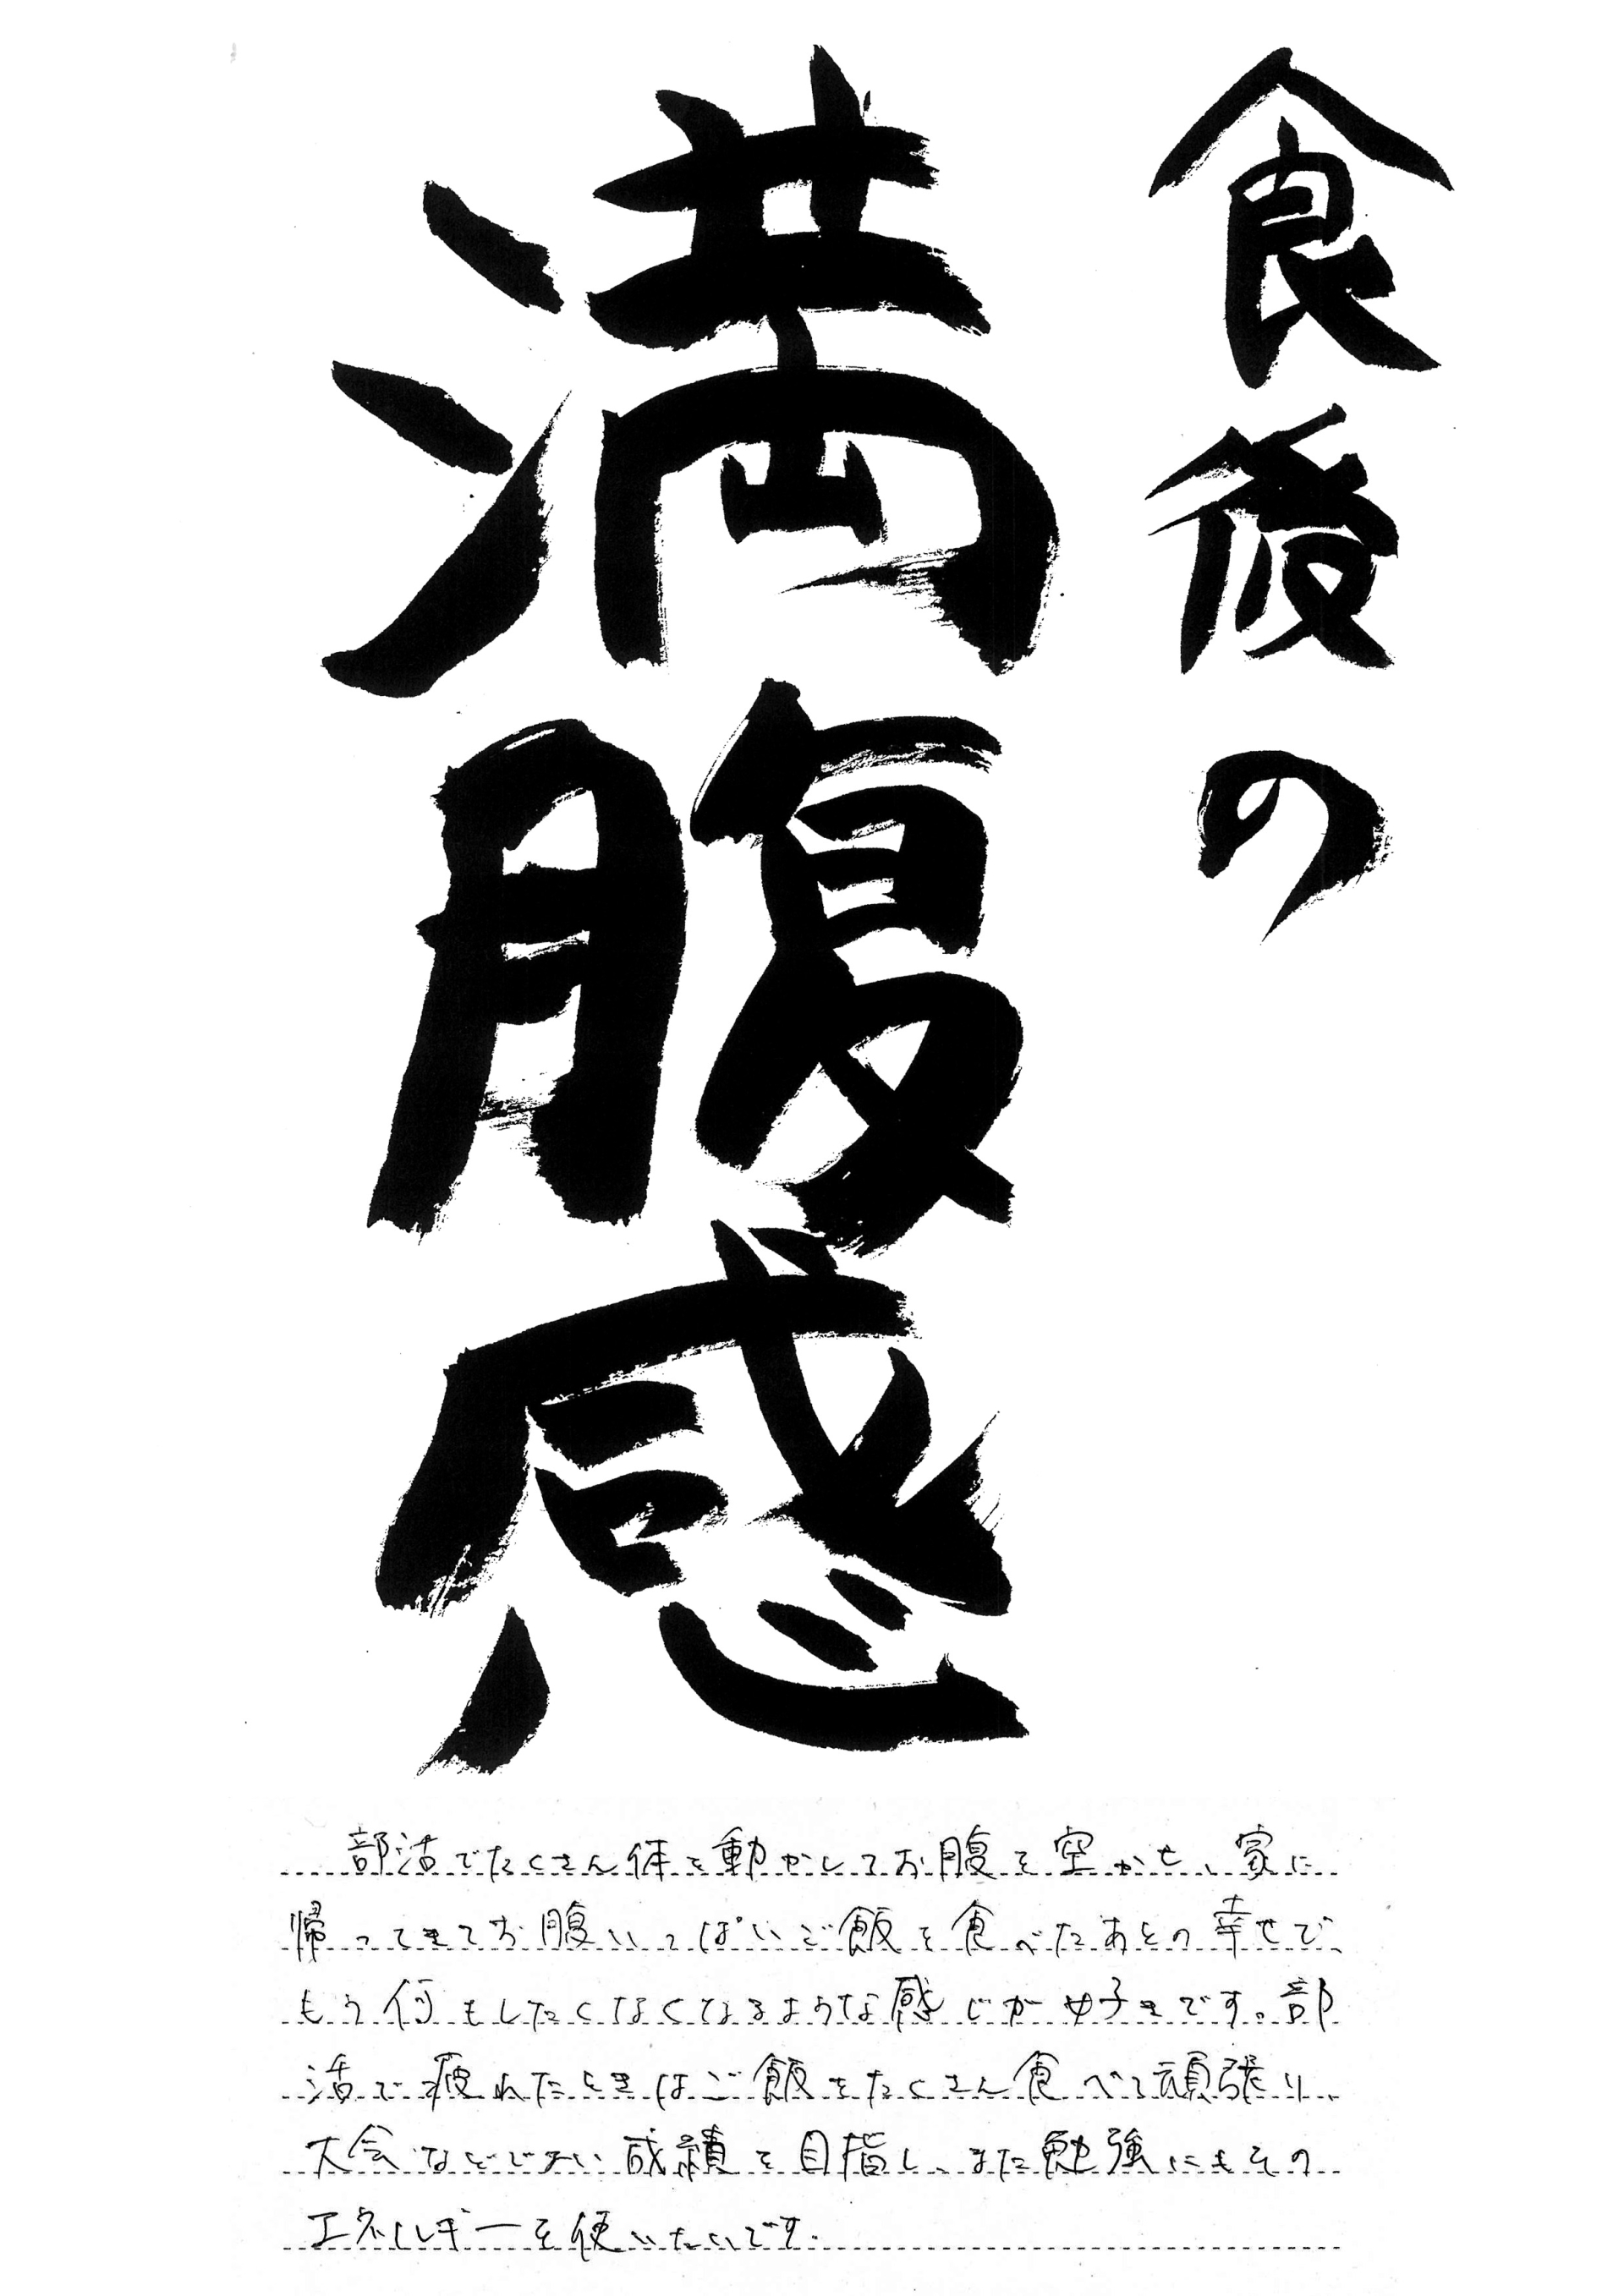 食後の
満腹感
部活でたくさん体を動かしてお腹を空かせ、家に
帰ってきてお腹いっぱいご飯を食べたあとの幸せで、
もう何もしたくなくなるような感じが好きです。部
活で疲れたときはご飯をたくさん食べて頑張り、
大会などでよい成績を目指し、また勉強にもその
エネルギーを使いたいです。